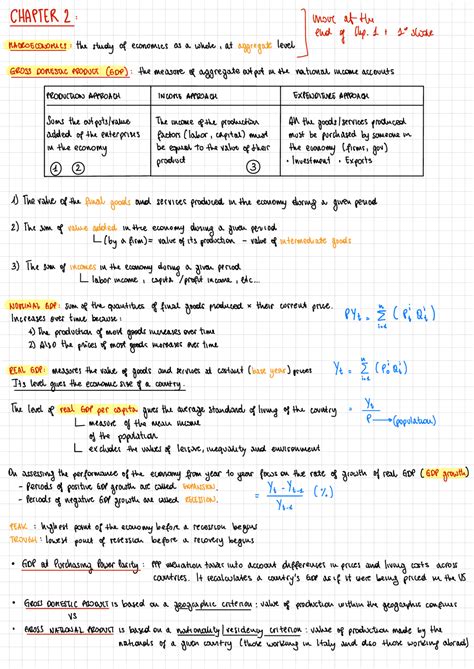 CHAPTER 2:
move at the
end of Chp. 1 + 1st slide
MACROECONOMICS: the study of economics as a whole, at aggregate level
GROSS DOMESTIC PRODUCT (GDP): the measure of aggregate output in the national income accounts
PRODUCTION APPROACH
Sums the outputs/value
added of the enterprises
in the economy
① ②
INCOME APPROACH
The income of the production
factors (labor, capital) must
be equal to the value of their
product
③
EXPENDITURE APPROACH
All the goods/services produced
must be purchased by someone in
the economy (firms, gov)
• Investment • Exports
1) The value of the final goods and services produced in the economy during a given period
2) The sum of value added in the economy during a given period
(by a firm) = value of its production - value of intermediate goods
3) The sum of incomes in the economy during a given period
labor income, capital/profit income, etc...
NOMINAL GDP: sum of the quantities of final goods produced × their current price.
Increases over time because:
PYt = Σ (Pit Qit)
1) The production of most goods increases over time
2) Also the prices of most goods increases over time
REAL GDP: measures the value of goods and services at costant (base year) prices
Yt = Σ (Pi0 Qit)
Its level gives the economic size of a country.
The level of real GDP per capita gives the average standard of living of the country = Yt / P → (population)
measure of the mean income
of the population
excludes the values of leisure, inequality and environment
On assessing the performance of the economy from year to year focus on the rate of growth of real GDP (GDP growth)
- Periods of positive GDP growth are called EXPANSION.
- Periods of negative GDP growth are called RECESSION.
= Yt - Yt-1 / Yt-1 (%)
PEAK: highest point of the economy before a recession begins
TROUGH: lowest point of recession before a recovery begins
• GDP at Purchasing Power Parity: PPP evaluation takes into account differences in prices and living costs across
countries. It recalculates a country's GDP as if it were being priced in the US
• GROSS DOMESTIC PRODUCT is based on a geographic criterion: value of production within the geographic confines
VS
• GROSS NATIONAL PRODUCT is based on a nationality/residency criterion: value of production made by the
nationals of a given country (those working in Italy and also those working abroad)